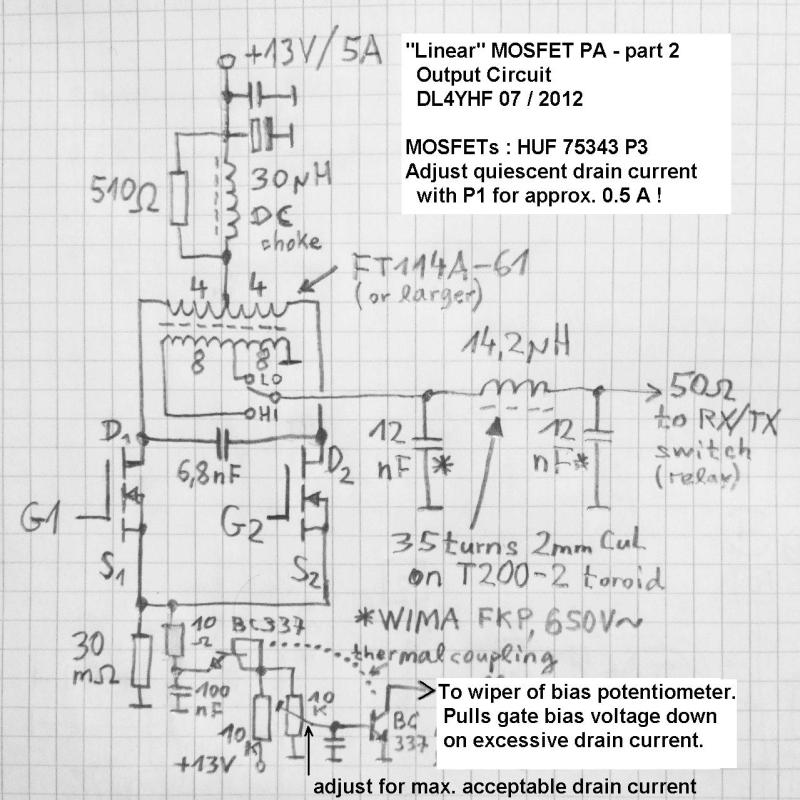 +13V/5A
"Linear" MOSFET PA - part 2
Output Circuit
DL4YHF 07 / 2012
MOSFETs : HUF 75343 P3
Adjust quiescent drain current
with P1 for approx. 0.5 A !
510Ω
30µH
DC
choke
4 4
FT114A-61
(or larger)
8 8
LO
HI
14,2µH
50Ω
to RX/TX
switch
(relay)
12
nF*
12
nF*
D1
6,8nF
D2
G1
G2
S1
S2
35 turns 2mm CuL
on T200-2 toroid
*WIMA FKP, 650V~
30
mΩ
10
Ω
BC337
thermal coupling
100
nF
10
K
10
K
+13V
BC
337
To wiper of bias potentiometer.
Pulls gate bias voltage down
on excessive drain current.
adjust for max. acceptable drain current